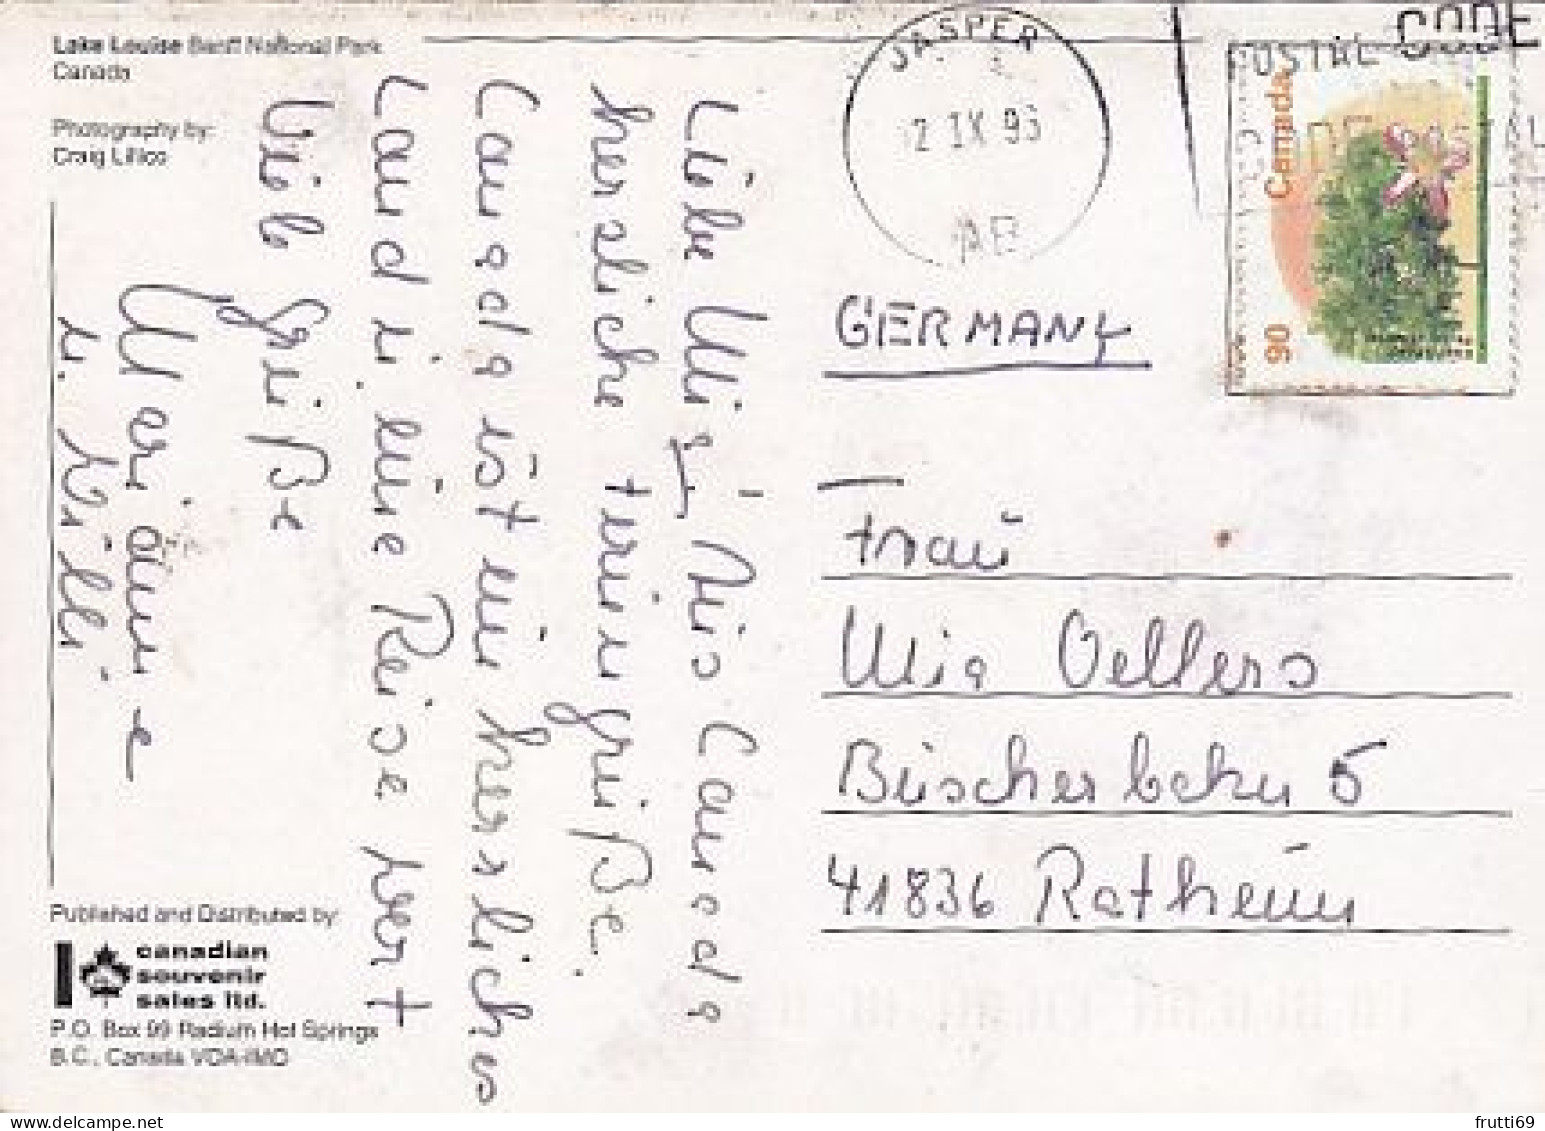 Lake Louise Banff National Park
Canada
Photography by:
Craig Lillico
Liebe Mia, Aus Canada
herzliche Feriengrüße.
Canada ist ein herrliches
Land u. eine Reise wert
Viele Grüße
Marianne
u. Willi
Published and Distributed by:
canadian
souvenir
sales ltd.
P.O. Box 99 Radium Hot Springs
B.C., Canada VOA-IMO
JASPER
2 IX 93
AB
POSTAL CODE
CODE POSTAL
Canada
90
GERMANY
Frau
Mia Oellers
Büscherbahn 5
41836 Ratheim
frutti69